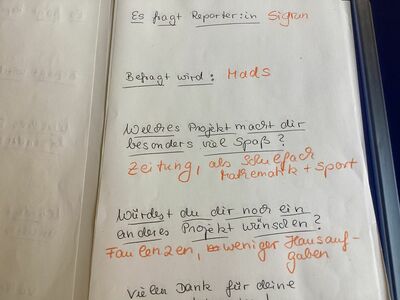 Es fragt Reporter:in Sigrun
Befragt wird: Mads
Welches Projekt macht dir
besonders viel Spaß?
Zeitung, als Schulfach
Mathematik + Sport
Würdest du dir noch ein
anderes Projekt wünschen?
Faulenzen, weniger Hausauf-
gaben
Vielen Dank für deine